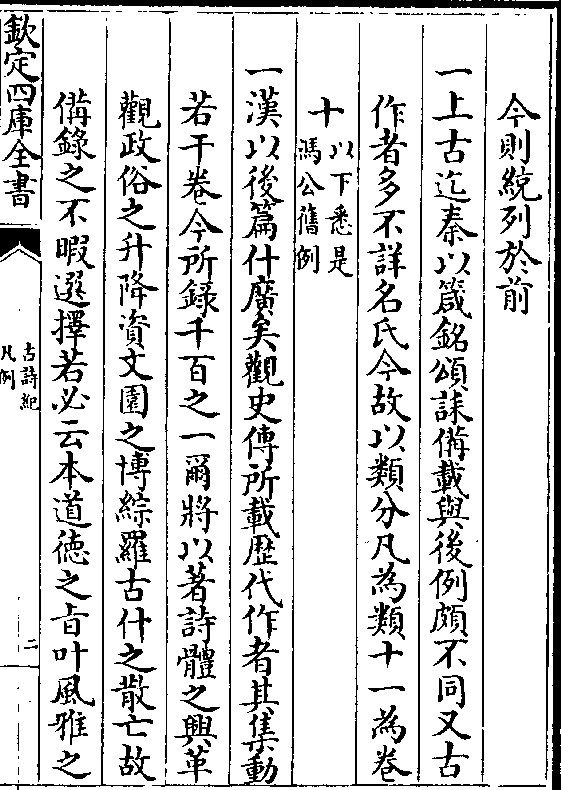 今則統列於前
一上古迄秦以箴銘頌誄備載與後例頗不同又古
作者多不詳名氏今故以類分凡為類十一為卷
十以下悉是
馮公舊例
一漢以後篇什廣矣觀史傳所載歴代作者其集動
若干卷今所録千百之一爾將以著詩體之興革
觀政俗之升降資文園之博綜羅古什之散亡故
備録之不暇選擇若必云本道徳之㫖叶風雅之
欽定四庫全書
古詩紀
凡例
二